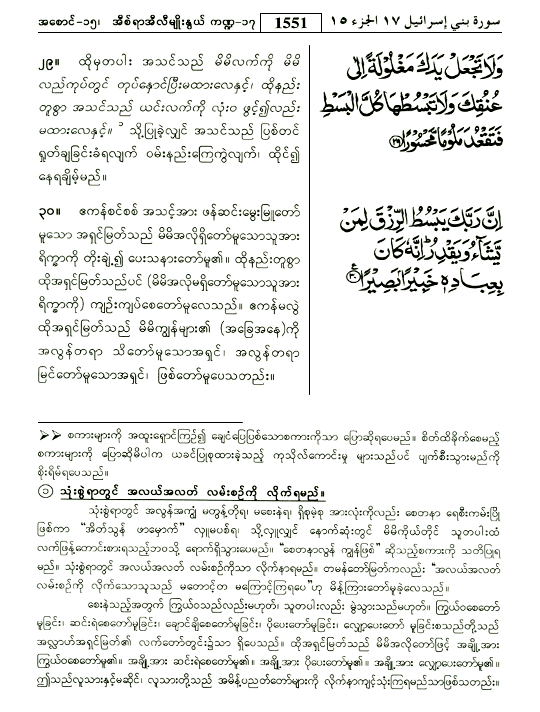 အစောင်-၁၅၊ အီစ်ရာအီလီမျိုးနွယ် ကဏ္ဍ-၁၇ 1551 سورة بني إسرائيل ١٧ الجزء ١٥
၂၉။ ထိုမှတပါး အသင်သည် မိမိလက်ကို မိမိ
လည်ကုပ်တွင် တုပ်နှောင်ပြီးမထားလေနှင့်၊ ထိုနည်း
တူစွာ အသင်သည် ယင်းလက်ကို လုံးဝ ဖွင့်၍လည်း
မထားလေနှင့်။ ၁ သို့ပြုခဲ့လျှင် အသင်သည် ပြစ်တင်
ရှုတ်ချခြင်းခံရလျက် ဝမ်းနည်းကြေကွဲလျက်၊ ထိုင်၍
နေရချိမ့်မည်။
وَلَا تَجْعَلْ يَدَكَ مَغْلُولَةً إِلَىٰ
عُنُقِكَ وَلَا تَبْسُطْهَا كُلَّ الْبَسْطِ
فَتَقْعُدَ مَلُومًا مَّحْسُورًا ﴿٢٩﴾
၃၀။ ဧကန်စင်စစ် အသင့်အား ဖန်ဆင်းမွေးမြူတော်
မူသော အရှင်မြတ်သည် မိမိအလိုရှိတော်မူသောသူအား
ရိက္ခာကို တိုးချဲ့၍ ပေးသနားတော်မူ၏။ ထိုနည်းတူစွာ
ထိုအရှင်မြတ်သည်ပင် (မိမိအလိုမရှိတော်မူသောသူအား
ရိက္ခာကို) ကျဉ်းကျပ်စေတော်မူလေသည်။ ဧကန်မလွဲ
ထိုအရှင်မြတ်သည် မိမိကျွန်များ၏ (အခြေအနေ)ကို
အလွန်တရာ သိတော်မူသောအရှင်၊ အလွန်တရာ
မြင်တော်မူသောအရှင်၊ ဖြစ်တော်မူပေသတည်း။
إِنَّ رَبَّكَ يَبْسُطُ الرِّزْقَ لِمَنْ
يَّشَاءُ وَيَقْدِرُ ؕ إِنَّهٗ كَانَ
بِعِبَادِهٖ خَبِيْرًا بَصِيْرًا ﴿٣٠﴾
➢➢ စကားများကို အထူးရှောင်ကြဉ်၍ ချေငံပြေပြစ်သောစကားကိုသာ ပြောဆိုရပေမည်။ စိတ်ထိခိုက်စေမည့်
စကားများကို ပြောဆိုမိပါက ယခင်ပြုစုထားခဲ့သည့် ကုသိုလ်ကောင်းမှု များသည်ပင် ပျက်စီးသွားမည်ကို
စိုးရိမ်ရပေသည်။
၁ သုံးစွဲရာတွင် အလယ်အလတ် လမ်းစဉ်ကို လိုက်ရမည်။
သုံးစွဲရာတွင် အလွန်အကျွံ မတွန့်တိုရ၊ မစေးနှဲရ၊ ရှိစုမဲ့စု အားလုံးကိုလည်း စေတနာ ရေစီးကမ်းပြို
ဖြစ်ကာ “အိတ်သွန် ဖာမှောက်” လှူမပစ်ရ၊ သို့လှူလျှင် နောက်ဆုံးတွင် မိမိကိုယ်တိုင် သူတပါးထံ
လက်ဖြန့်တောင်းစားရသည့်ဘဝသို့ ရောက်ရှိသွားပေမည်။ “စေတနာလွန် ကျွန်ဖြစ်” ဆိုသည့်စကားကို သတိပြုရ
မည်။ သုံးစွဲရာတွင် အလယ်အလတ် လမ်းစဉ်ကိုသာ လိုက်နာရမည်။ တမန်တော်မြတ်ကလည်း “အလယ်အလတ်
လမ်းစဉ်ကို လိုက်သောသူသည် မတောင့်တ မကြောင့်ကြရပေ”ဟု မိန့်ကြားတော်မူခဲ့လေသည်။
စေးနှဲသည့်အတွက် ကြွယ်ဝသည်လည်းမဟုတ်၊ သူတပါးလည်း မွဲသွားသည်မဟုတ်။ ကြွယ်ဝစေတော်
မူခြင်း၊ ဆင်းရဲစေတော်မူခြင်း၊ ချောင်ချိစေတော်မူခြင်း၊ ပိုပေးတော်မူခြင်း၊ လျှော့ပေးတော် မူခြင်းစသည်တို့သည်
အလ္လာဟ်အရှင်မြတ်၏ လက်တော်တွင်း၌သာ ရှိပေသည်။ ထိုအရှင်မြတ်သည် မိမိအလိုတော်ဖြင့် အချို့အား
ကြွယ်ဝစေတော်မူ၏။ အချို့အား ဆင်းရဲစေတော်မူ၏။ အချို့အား ပိုပေးတော်မူ၏။ အချို့အား လျှော့ပေးတော်မူ၏။
ဤသည်လူသားနှင့်မဆိုင်၊ လူသားတို့သည် အမိန့်ပညတ်တော်များကို လိုက်နာကျင့်သုံးကြရမည်သာဖြစ်သတည်း။